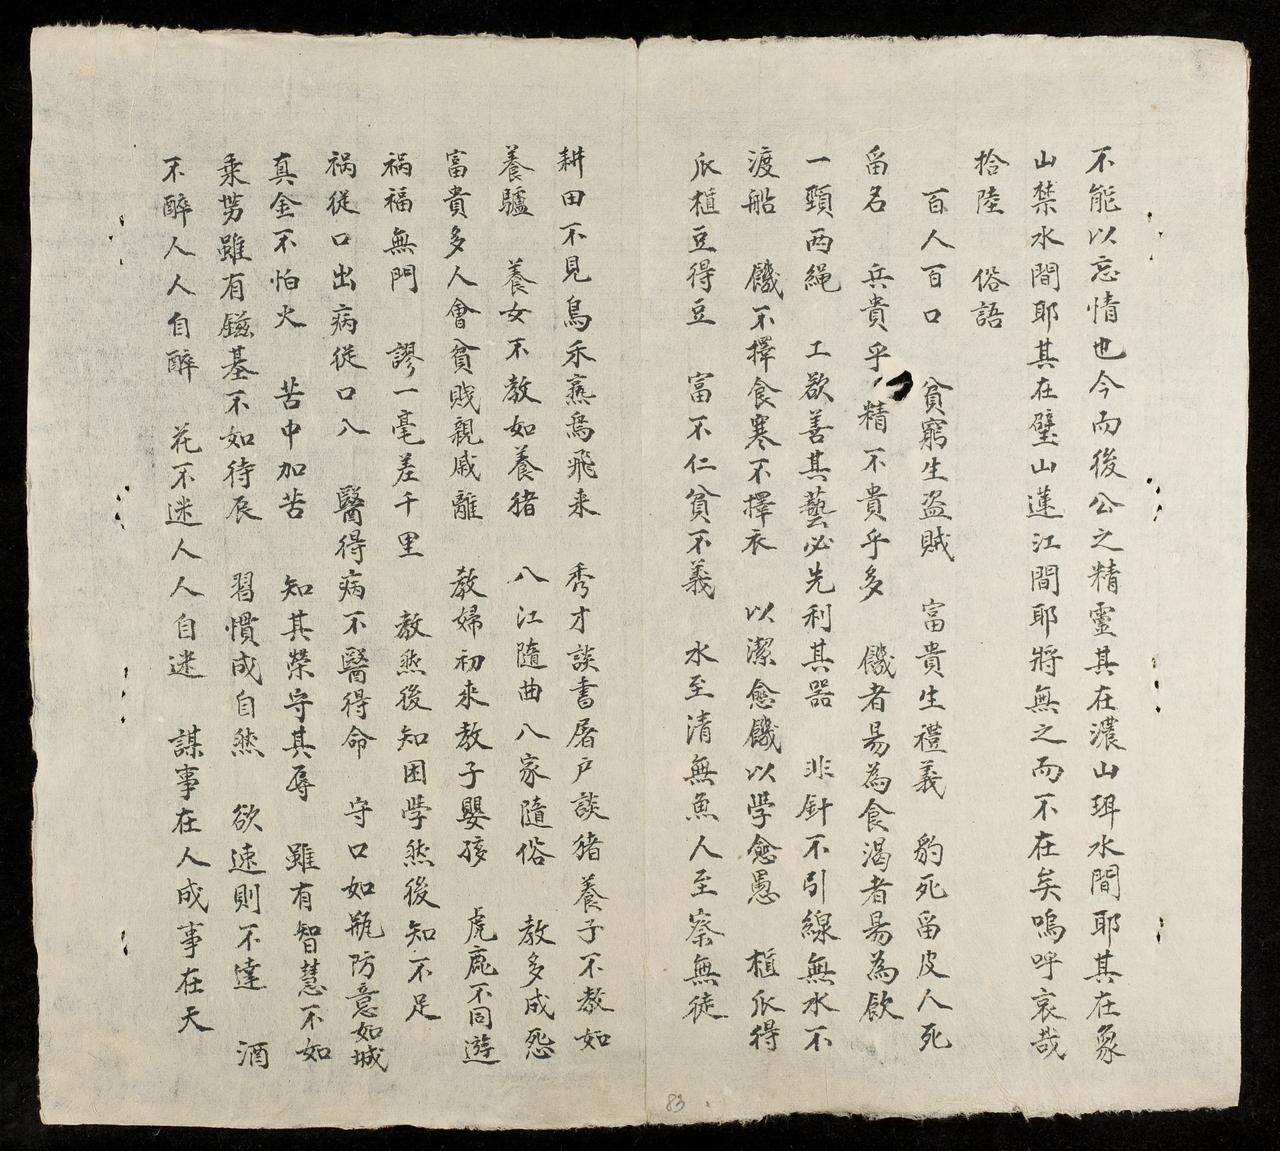 不能以忘情也今而後公之精靈其在濃山珥水間耶其在象
山禁水間耶其在璧山蓮江間耶將無之而不在矣嗚呼哀哉
拾陸 俗語
百人百口 貧窮生盜賊 富貴生禮義 豹死留皮人死
留名 兵貴乎精不貴乎多 饑者易為食渴者易為飲
一頸両繩 工欲善其藝必先利其器 非針不引線無水不
渡船 饑不擇食寒不擇衣 以潔愈饑以学愈愚 植瓜得
瓜植豆得豆 富不仁貧不義 水至清無魚人至察無徒
耕田不見鳥禾熟鳥飛来 秀才談書屠户談猪 養子不教如
養驢 養女不教如養猪 八江隨曲八家隨俗 教多成怨
富貴多人會貧賤親戚離 教婦初来教子嬰孩 虎鹿不同遊
禍福無門 謬一毫差千里 教然後知困学然後知不足
禍従口出病従口八 醫得病不醫得命 守口如瓶防意如城
真金不怕火 苦中加苦 知其榮守其辱 雖有智慧不如
乘势雖有鎡基不如待辰 習慣成自然 欲速則不達 酒
不醉人人自醉 花不迷人人自迷 謀事在人成事在天
83